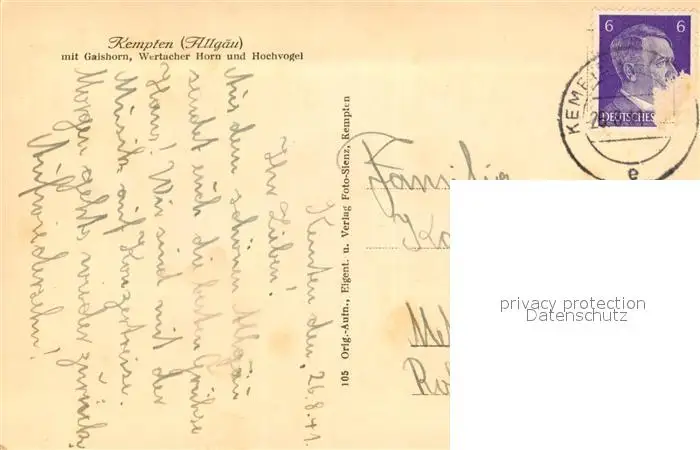 Kempten (Allgäu)
mit Gaishorn, Wertacher Horn und Hochvogel
Kempten den, 26.8.41.
Ihr Lieben!
Aus dem schönen Allgäu
sendet euch die besten Grüße
Hans! Wir sind mit der
Musik auf Konzertreise.
Morgen geht's wieder zurück!
Aufwiedersehn!
105 Orig.-Aufn., Eigent. u. Verlag Foto-Sienz, Kempten
6 6
DEUTSCHES
KEMP
e
Familie
privacy protection
Datenschutz